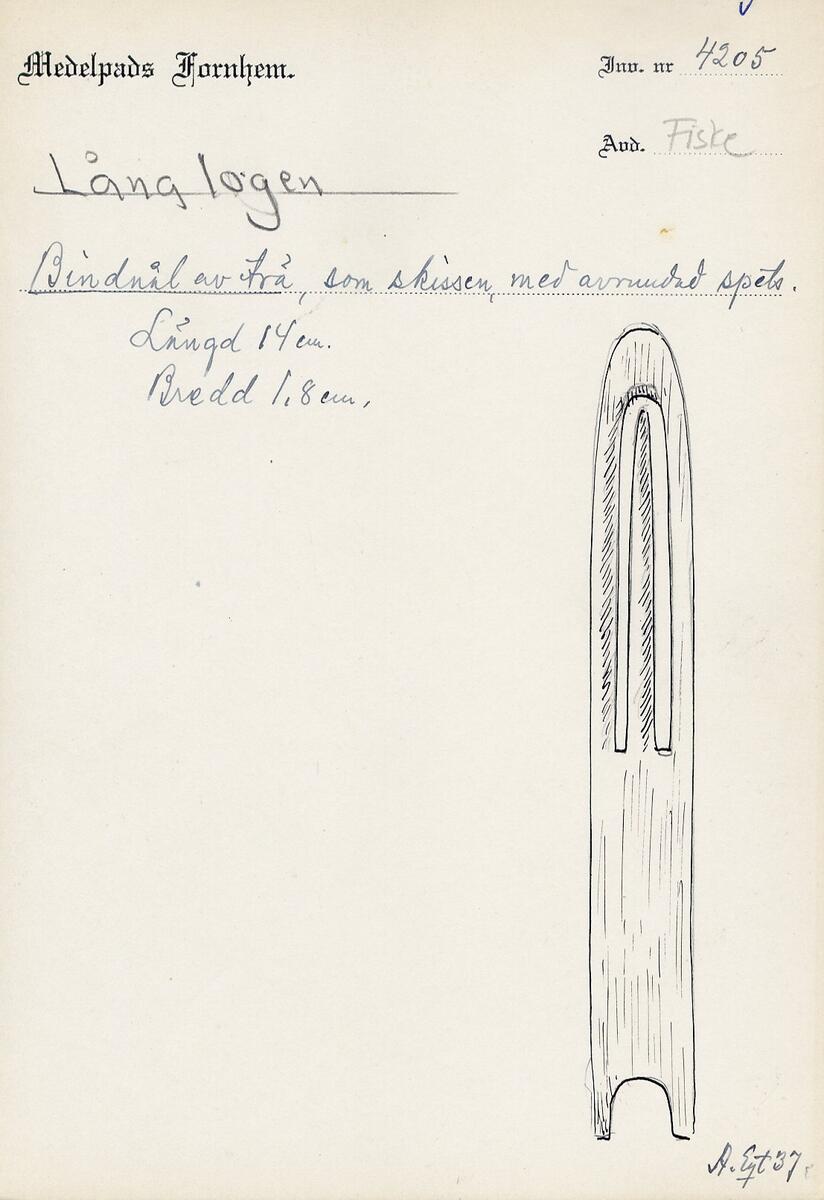 Medelpads Fornhem.
Inv. nr 4205
Avd. Fiske
Långlogen
Bindnål av trä, som skissen, med avrundad spets.
Längd 14 cm.
Bredd 1,8 cm.
A. 37